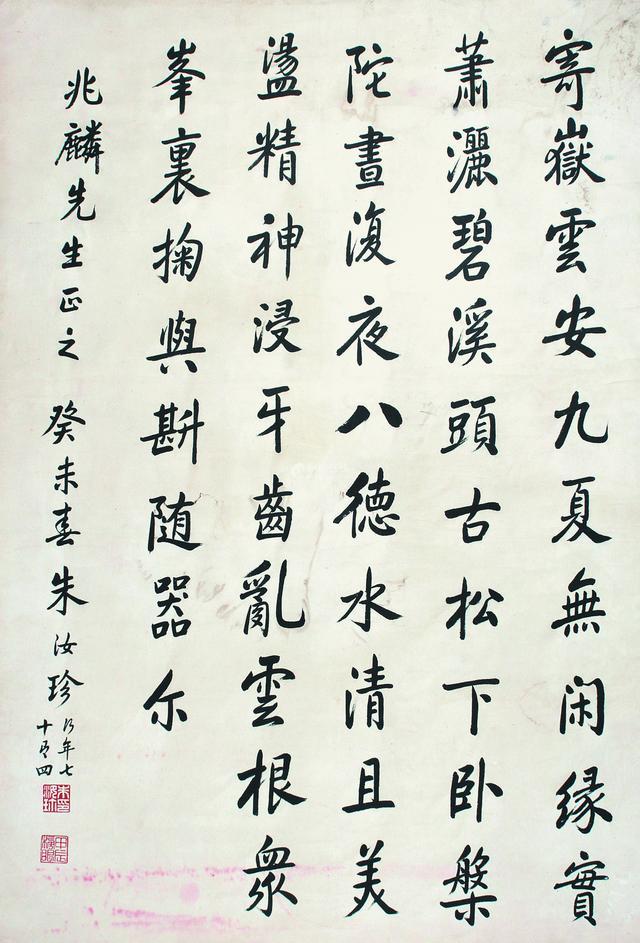 寄嶽雲安九夏無閑縁實
蕭灑碧溪頭古松下卧槃
陀晝復夜八德水清且美
盪精神浸牙齒亂雲根衆
峯裏掬與斟随器尔
兆麟先生正之 癸未 朱汝珍
行年七
十有四
朱印汝珍
甲辰榜眼